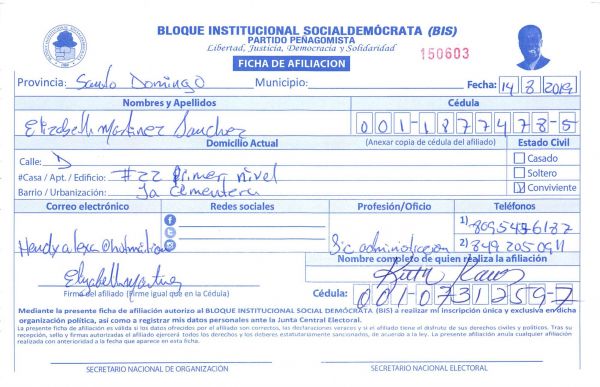 BLOQUE INSTITUCIONAL SOCIALDEMÓCRATA (BIS)
PARTIDO PEÑAGOMISTA
Libertad, Justicia, Democracia y Solidaridad
FICHA DE AFILIACION
150603
Provincia: Santo Domingo Municipio: Fecha: 14 8 2019
Nombres y Apellidos Cédula
Elizabeth Martinez Sanchez 001-1877478-5
Domicilio Actual (Anexar copia de cédula del afiliado) Estado Civil
Calle: D Casado
#Casa / Apt. / Edificio: #22 Primer nivel Soltero
Barrio / Urbanización: La Cementera Conviviente
Correo electrónico Redes sociales Profesión/Oficio Teléfonos
1)
2) 849 205 0911
Lic administracion
Nombre completo de quien realiza la afiliación
Elizabeth Martinez
Firma del afiliado (Firme igual que en la Cédula)
Cédula: 001-0731259-7
Mediante la presente ficha de afiliación autorizo al BLOQUE INSTITUCIONAL SOCIAL DEMÓCRATA (BIS) a realizar mi inscripción única y exclusiva en dicha
organización política, así como a registrar mis datos personales ante la Junta Central Electoral.
La presente ficha de afiliación es válida si los datos ofrecidos por el afiliado son correctos, las declaraciones veraces y si el afiliado tiene el disfrute de sus derechos civiles y políticos. Tras su
recepción, sello y firmas autorizadas el afiliado ejercerá todos los derechos y los deberes estatutariamente sancionados, de acuerdo a la ley. La presente afiliación anula cualquier afiliación
realizada con anterioridad a la fecha que aparece en esta ficha.
SECRETARIO NACIONAL DE ORGANIZACIÓN SECRETARIO NACIONAL ELECTORAL